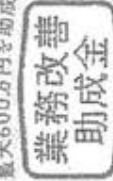 最大600万円を助成
業務改善
助成金